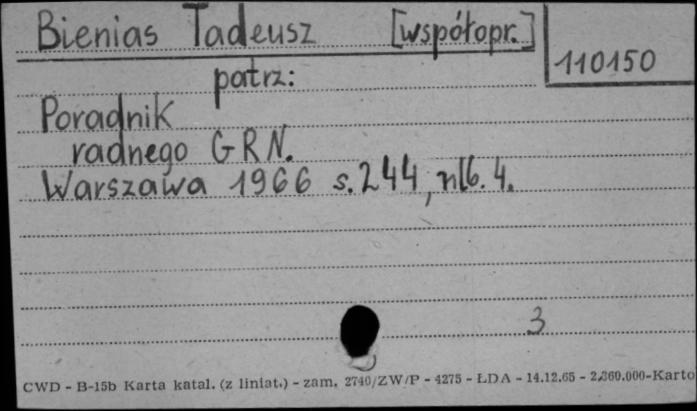 Bienias Tadeusz [współopr.]
110150
patrz:
Poradnik
radnego GRN.
Warszawa 1966 s. 244, nlb. 4.
3
CWD - B-15b Karta katal. (z liniat.) - zam. 2740/ZW/P - 4275 - ŁDA - 14.12.65 - 2.360.000-Karto